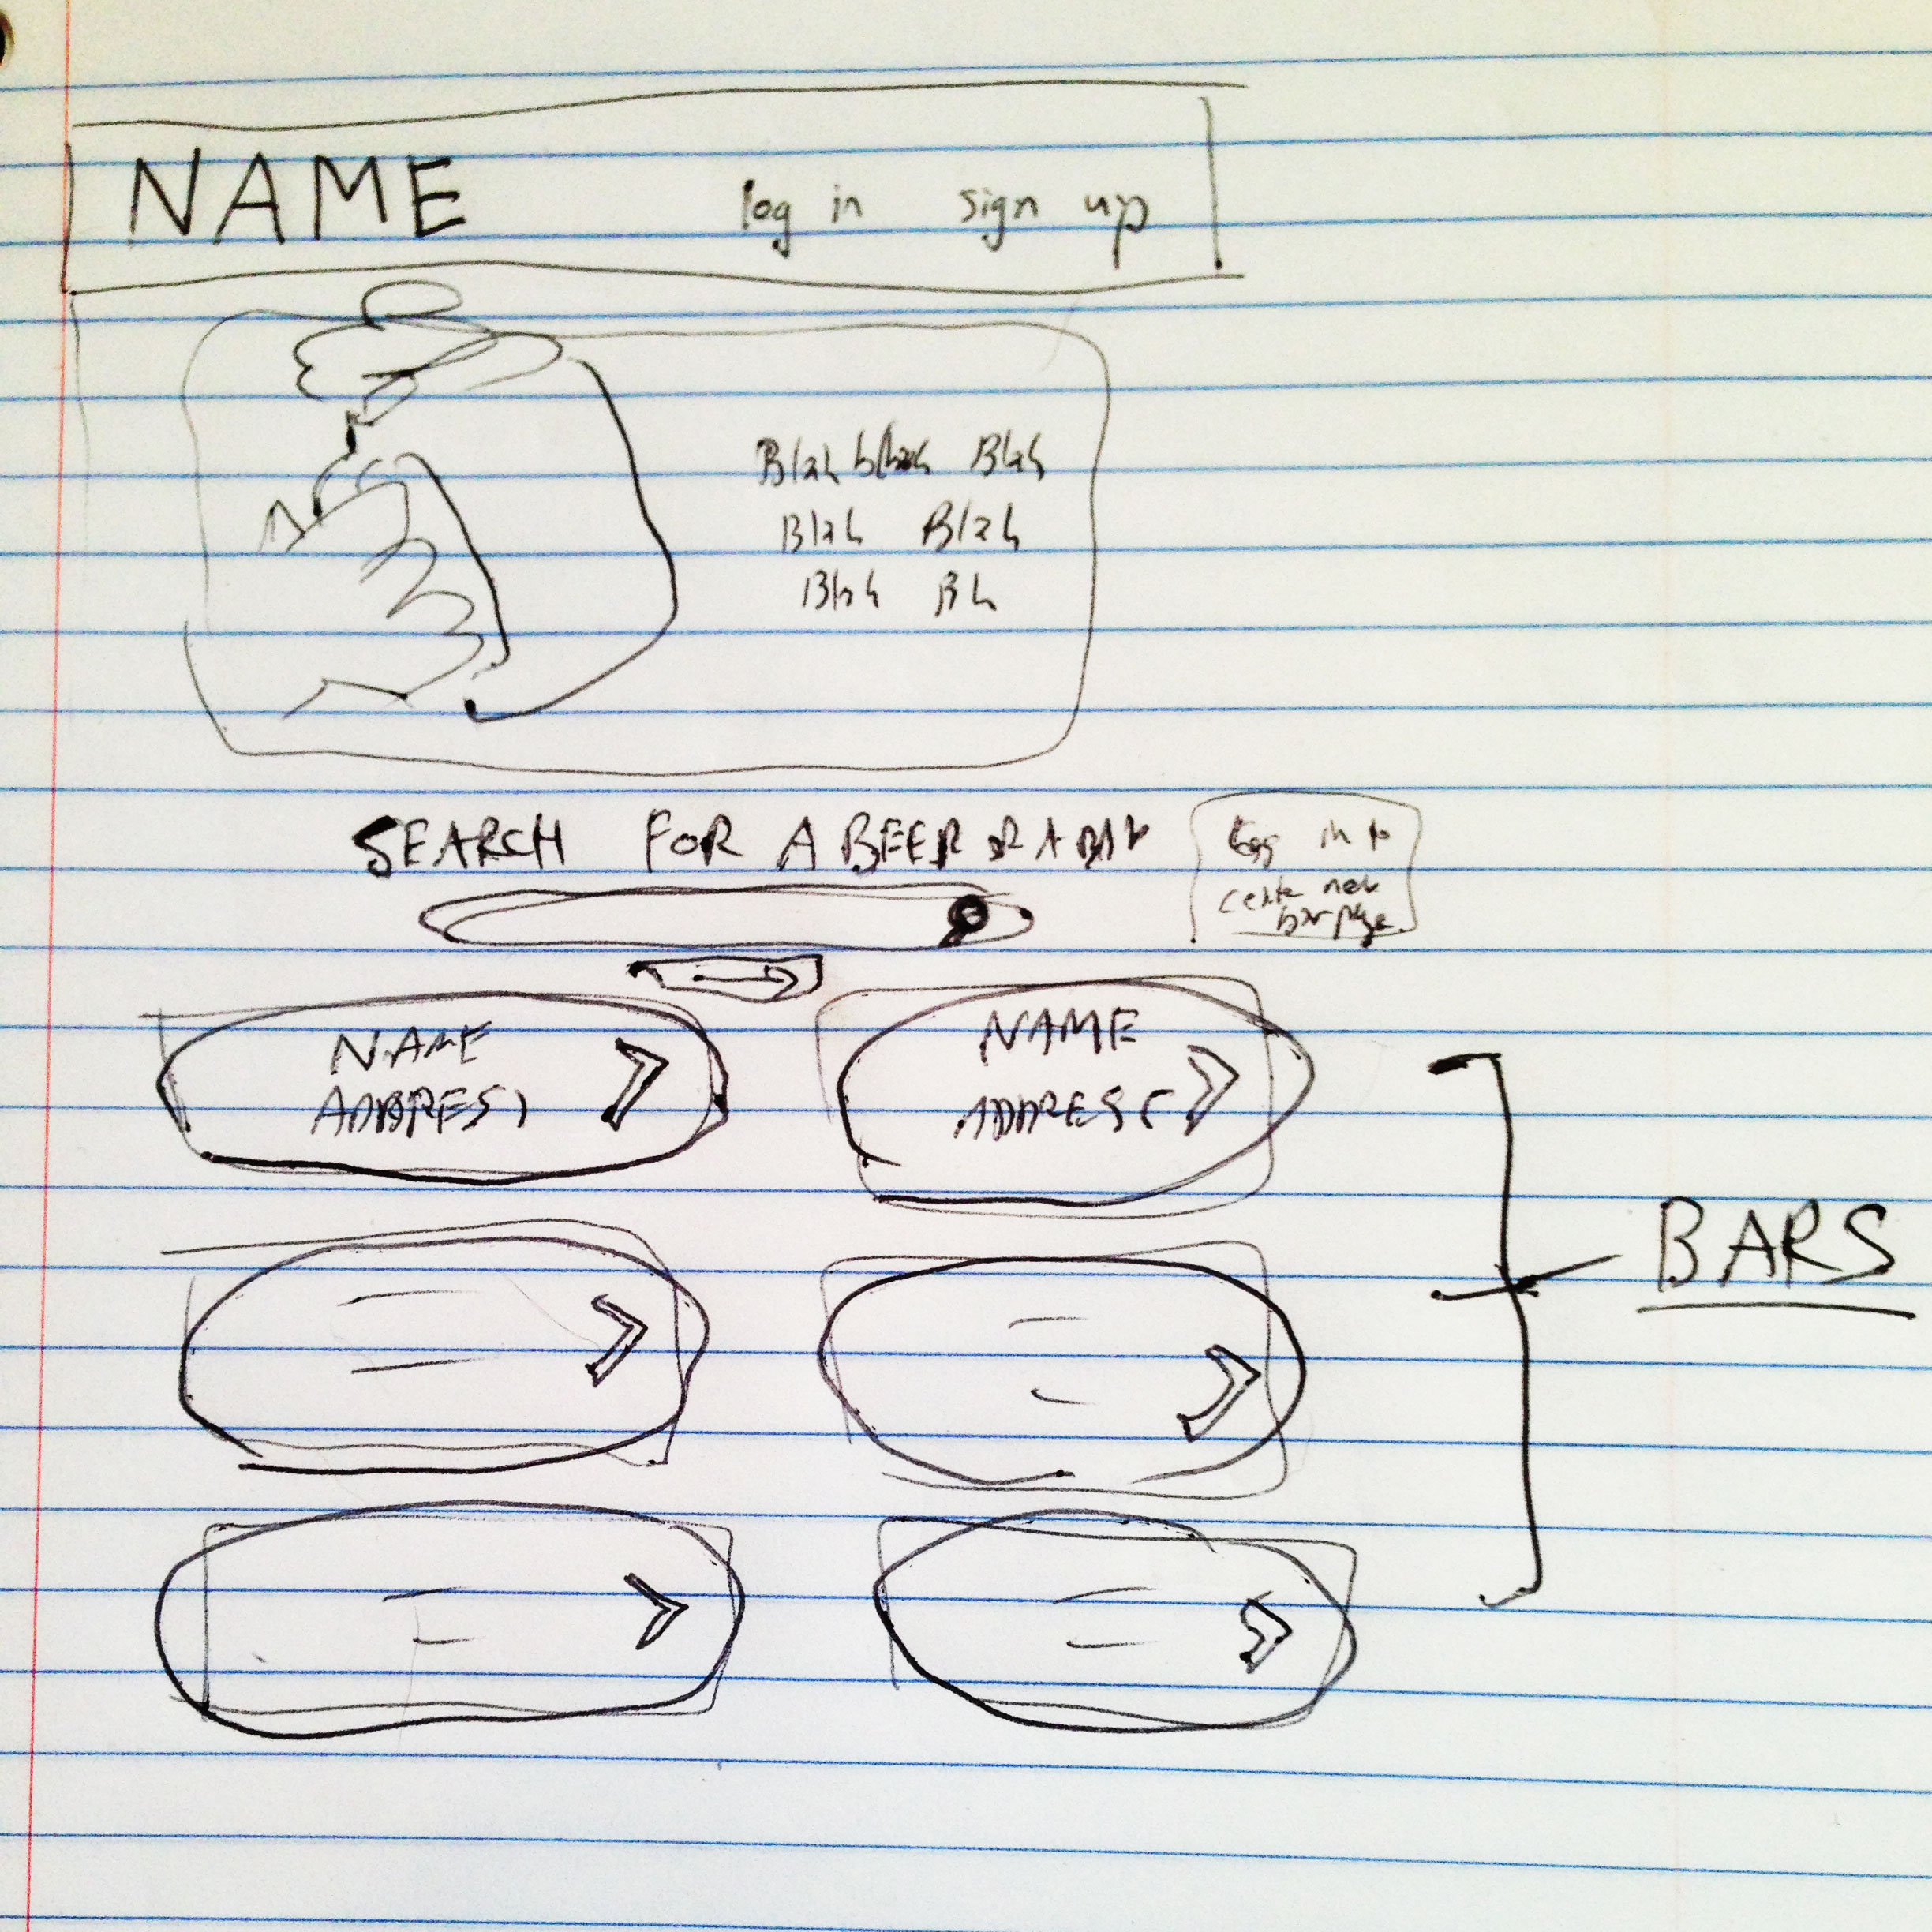 NAME log in sign up
Blah blah Blah
Blah Blah
Blah Bh
SEARCH FOR A BEER OR A BAR
log in to
create new
bar page
NAME
ADDRESS
NAME
ADDRESS
BARS